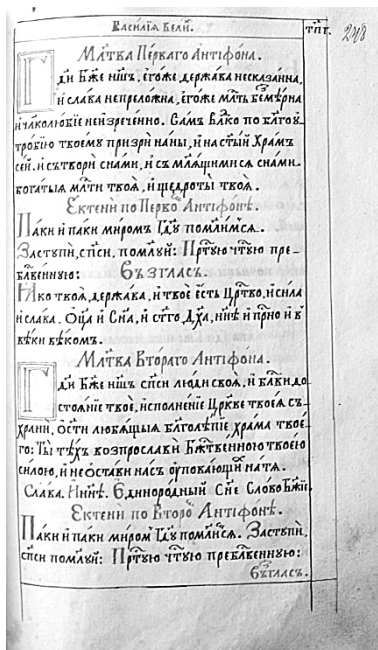 Василїѧ Вели͠. тп҃г. 248
Мл҃тва Пе́рваго Антїфо́на.
Гд҃и Бж҃е нш҃ъ, є҆го́же держа́ва несказа́нна,
и҆ сла́ва непрело́жна, є҆го́же мл҃ть безмѣ́рна
и҆ чл҃колю́бїе неизрече́нно. Са́мъ Влⷣко по блг҃оꙋ
тро́бїю твоемꙋ̀ при́зри на́ны, и҆ на ст҃ы́й Хра́мъ
се́й. и҆ сътворѝ сна́ми, и҆ съ мл҃ѧщимисѧ сна́ми.
бога́тыѧ мл҃ти твоѧ̀, и҆ щедро́ты твоѧ̀.
Єктенїѝ по Перво͠ Антїфо́нѣ.
Па́ки и҆ па́ки ми́ромъ Гдⷭ҇ꙋ помл҃имсѧ.
Застꙋпѝ, сп҃си, поми́лꙋй: Прⷭ҇тꙋ́ю чⷭ҇тꙋ́ю пре-
блⷭ҇ве́ннꙋю: Възгла́съ.
Ꙗ҆́ко твоѧ̀, держа́ва, и҆ твоѐ є҆́сть Црⷭ҇тво, и҆ си́ла
и҆ сла́ва. Оц҃а̀ и҆ Сн҃а, и҆ ст҃го Дх҃а, нн҃ѣ и҆ прⷭ҇но и҆ в
вѣ́ки вѣко́мъ.
Мл҃тва Вто́раго Антїфо́на.
Гд҃и Бж҃е нш҃ъ сп҃си лю́ди своѧ̀, и҆ блг҃ви до
стоѧ́нїе твоѐ, и҆сполне́нїе Цр҃кве твоеѧ̀ съ
хранѝ, ѡ҆ст҃и лю́бѧщыѧ блг҃олѣ́пїе, хра́ма твоє-
го̀: Ты̀ тѣ́хъ возпросла́ви Бжⷭ҇твенною твоє́ю
си́лою, и҆ не ѡ҆ста́ви на́съ ᲂу҆пова́ющихъ на тѧ̀.
Сла́ва. И҆ нн҃ѣ. Є҆диноро́дный Сн҃е Сло́во Бж҃їе.
Єктенїѝ по Второ͠ Антїфо́нѣ.
Па́ки и҆ па́ки ми́ромъ Гдⷭ҇ꙋ помл҃имсѧ. Застꙋпѝ,
сп҃си поми́лꙋй: Прⷭ҇тꙋ́ю чⷭ҇тꙋ́ю преблⷭ҇ве́ннꙋю:
Възгла́съ.